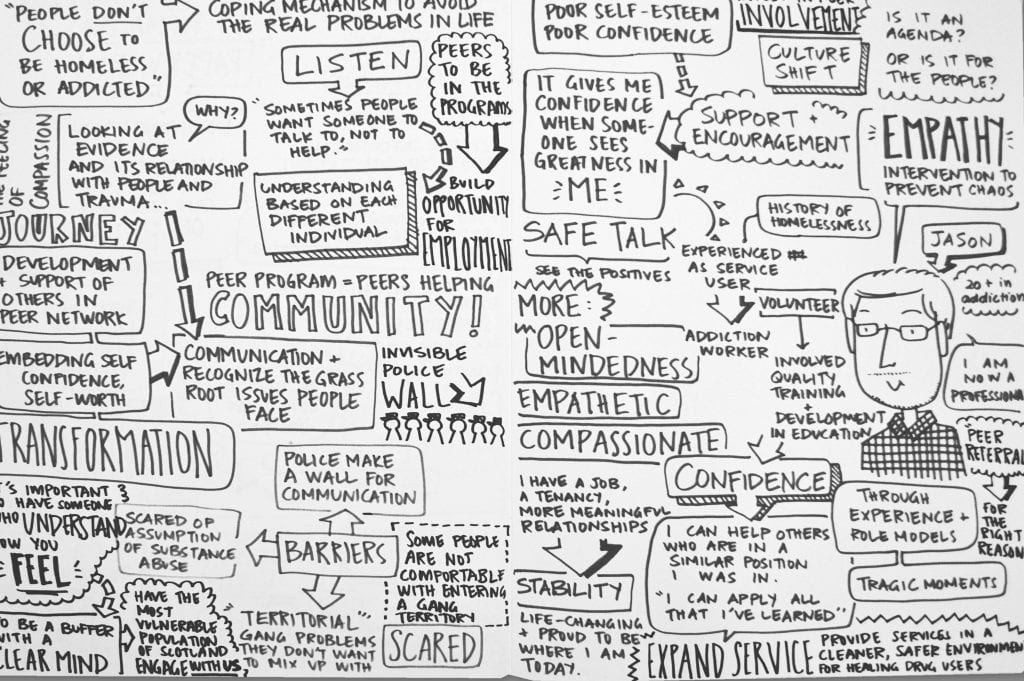 "PEOPLE DON'T
CHOOSE TO
BE HOMELESS
OR ADDICTED"
COPING MECHANISM TO AVOID
THE REAL PROBLEMS IN LIFE
LISTEN
"SOMETIMES PEOPLE
WANT SOMEONE TO
TALK TO, NOT TO
HELP."
PEERS
TO BE
IN THE
PROGRAMS
BUILD
OPPORTUNITY
FOR
EMPLOYMENT
WHY?
OF
COMPASSION
LOOKING AT
EVIDENCE
AND ITS RELATIONSHIP
WITH PEOPLE AND
TRAUMA...
UNDERSTANDING
BASED ON EACH
DIFFERENT
INDIVIDUAL
JOURNEY
DEVELOPMENT
+ SUPPORT OF
OTHERS IN
PEER NETWORK
PEER PROGRAM = PEERS HELPING
COMMUNITY!
EMBEDDING SELF
CONFIDENCE,
SELF-WORTH
COMMUNICATION +
RECOGNIZE THE GRASS
ROOT ISSUES PEOPLE
FACE
INVISIBLE
POLICE
WALL
TRANSFORMATION
POLICE MAKE
A WALL FOR
COMMUNICATION
IT'S IMPORTANT
TO HAVE SOMEONE
WHO UNDERSTAND
HOW YOU
FEEL
SCARED OF
ASSUMPTION
OF SUBSTANCE
ABUSE
BARRIERS
SOME PEOPLE
ARE NOT
COMFORTABLE
WITH ENTERING
A GANG
TERRITORY
TO BE A BUFFER
WITH A
CLEAR MIND
HAVE THE
MOST
VULNERABLE
POPULATION
OF SCOTLAND
ENGAGE WITH US
"TERRITORIAL"
GANG PROBLEMS
THEY DON'T WANT
TO MIX UP WITH
SCARED
POOR SELF-ESTEEM
POOR CONFIDENCE
INVOLVEMENT
CULTURE
SHIFT
IS IT AN
AGENDA?
OR IS IT FOR
THE PEOPLE?
IT GIVES ME
CONFIDENCE
WHEN SOME-
ONE SEES
GREATNESS IN
ME
SUPPORT +
ENCOURAGEMENT
EMPATHY
INTERVENTION TO
PREVENT CHAOS
SAFE TALK
SEE THE POSITIVES
EXPERIENCED
AS SERVICE
USER
HISTORY OF
HOMELESSNESS
JASON
20+ in
addiction
MORE:
OPEN-
MINDEDNESS
EMPATHETIC
COMPASSIONATE
ADDICTION
WORKER
VOLUNTEER
INVOLVED
QUALITY
TRAINING
+
DEVELOPMENT
IN EDUCATION
I AM
NOW A
PROFESSIONAL
"PEER
REFERRAL
FOR
THE
RIGHT
REASON
I HAVE A JOB,
A TENANCY,
MORE MEANINGFUL
RELATIONSHIPS
CONFIDENCE
THROUGH
EXPERIENCE +
ROLE MODELS
TRAGIC MOMENTS
I CAN HELP OTHERS
WHO ARE IN A
SIMILAR POSITION
I WAS IN.
"I CAN APPLY ALL
THAT I'VE LEARNED"
STABILITY
LIFE-CHANGING
+ PROUD TO BE
WHERE I AM
TODAY.
EXPAND SERVICE
PROVIDE SERVICES IN A
CLEANER, SAFER ENVIRONMENT
FOR HEALING DRUG USERS